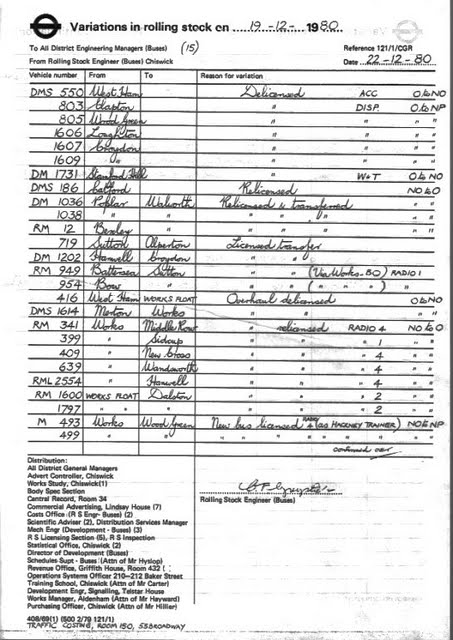 Variations in rolling stock on 19-12-1980
To All District Engineering Managers (Buses) (15) Reference 121/1/CGR
From Rolling Stock Engineer (Buses) Chiswick Date 22-12-80
Vehicle number From To Reason for variation
DMS 550 West Ham Delicensed ACC O to NO
803 Clapton " DISP. O to NP
805 Wood Green " " "
1606 Loughton " " "
1607 Croydon " " "
1609 " " " "
DM 1731 Stamford Hill " W+T O to NO
DMS 186 Catford Relicensed NO to O
DM 1036 Poplar Walworth Relicensed & transferred " "
1038 " " " " " "
RM 12 Bexley " " "
719 Sutton Alperton Licensed transfer
DM 1202 Hanwell Croydon " "
RM 949 Battersea Sutton " " (Via Works-BO) RADIO 1
954 Bow " " " ( " " " ) "
416 West Ham WORKS FLOAT Overhaul delicensed O to NO
DMS 1614 Merton Works " " " "
RM 341 Works Middle Row " relicensed RADIO 4 NO to O
399 " Sidcup " " " 1 " "
409 " New Cross " " " 4 " "
639 " Wandsworth " " " 4 " "
RML 2554 " Hanwell " " " 4 " "
RM 1600 WORKS FLOAT Dalston " " " 2 " "
1797 " " " " " " 2 " "
M 493 Works Wood Green New bus licensed RADIO 4 (as HACKNEY TRAINER) NO to NP
499 " " " " " " " " " "
continued over
Distribution:
All District General Managers
Advert Controller, Chiswick
Works Study, Chiswick(1)
Body Spec Section
Central Record, Room 34
Commercial Advertising, Lindsay House (7)
Costs Office (R S Engr- Buses) (2)
Scientific Adviser (2), Distribution Services Manager
Mech Engr (Development - Buses) (3)
R S Licensing Section (5), R S Inspection
Statistical Office, Chiswick (2)
Director of Development (Buses)
Schedules Supt - Buses (Attn of Mr Hyslop)
Revenue Office, Griffith House, Room 432 (
Operations Systems Officer 210-212 Baker Street
Training School, Chiswick (Attn of Mr Carter)
Development Engr, Signalling, Telstar House
Works Manager, Aldenham (Attn of Mr Hayward)
Purchasing Officer, Chiswick (Attn of Mr Hillier)
Rolling Stock Engineer (Buses)
408/69(1) (500 2/79 121/1)
TRAFFIC COSTING, ROOM 150, 55 BROADWAY